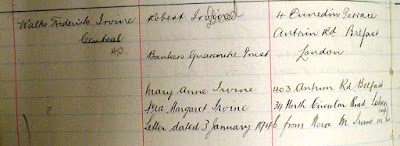 Walter Frederick Irvine Robert Irvine 4 Dunedin Terrace
Central Antrim Rd Belfast
Bankers Guarantee Trust London
Mary Anne Irvine 403 Antrim Rd Belfast
? Margaret Irvine 34 North Circular Road,
Letter dated 3 January 1946 from Nora M Irvine